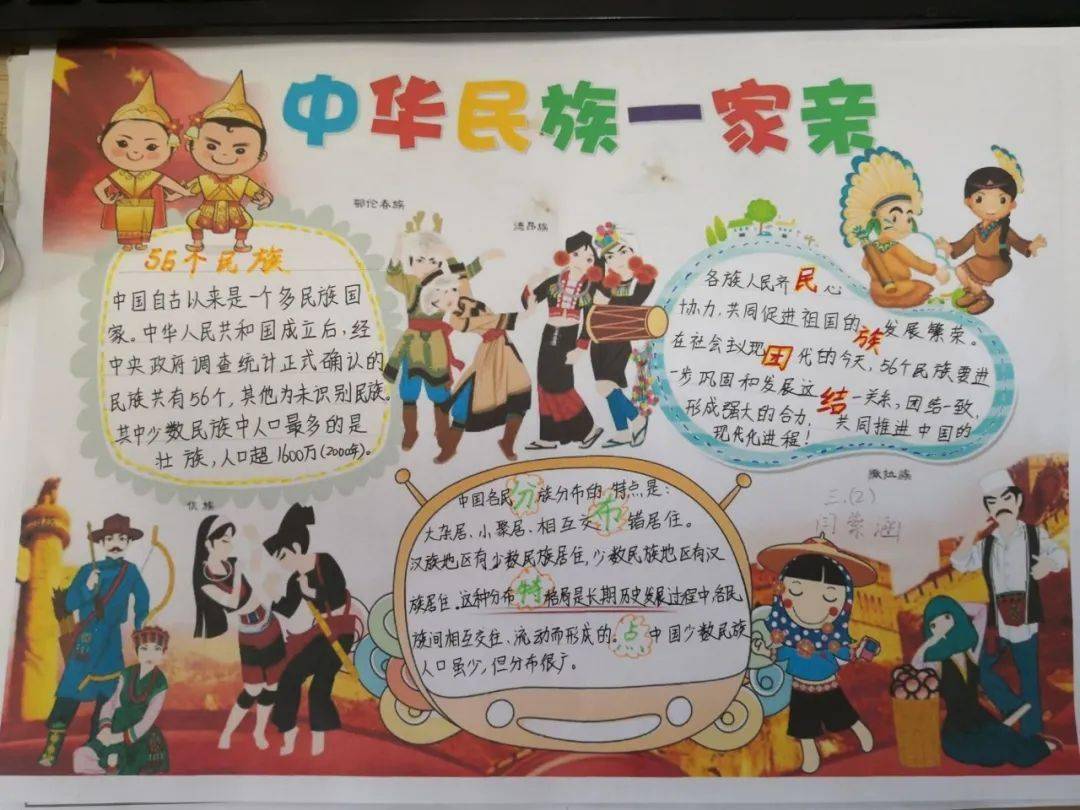 中华民族一家亲
鄂伦春族
德昂族
56个民族
中国自古以来是一个多民族国
家。中华人民共和国成立后，经
中央政府调查统计正式确认的
民族共有56个，其他为未识别民族。
其中少数民族中人口最多的是
壮族，人口超1600万(2000年)。
各族人民齐民心
协力，共同促进祖国的族发展繁荣。
在社会主义现团代的今天，56个民族要进
一步巩固和发展这结一关系，团结一致，
形成强大的合力，共同推进中国的
现代化进程！
撒拉族
佤族
三.(2)
闫荣涵
中国各民分族分布的特点是：
大杂居、小聚居、相互交布错居住。
汉族地区有少数民族居住，少数民族地区有汉
族居住。这种分布特格局是长期历史发展过程中各民
族间相互交往、流动而形成的。点中国少数民族
人口虽少，但分布很广。